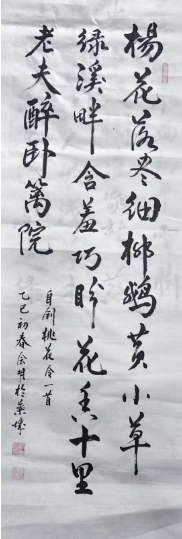 楊花落尽細柳鵝黄小草
緑溪畔含羞巧盼花香十里
老夫醉卧篱院
自創桃花令一首
乙巳初春